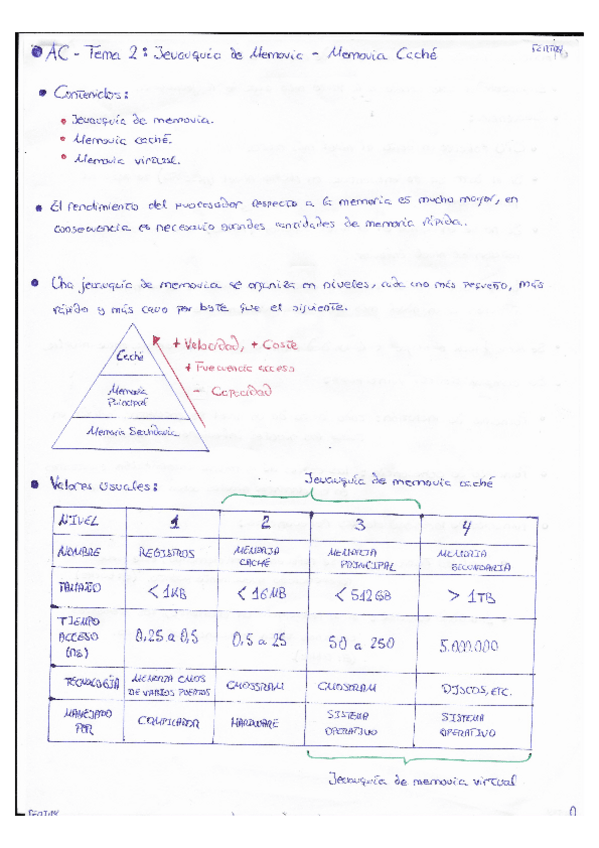 AC - Tema 2: Jerarquía de Memoria - Memoria Caché
Contenidos:
Jerarquía de memoria.
Memoria caché.
Memoria virtual.
El rendimiento del procesador respecto a la memoria es mucho mayor, en
consecuencia es necesario grandes cantidades de memoria rápida.
Una jerarquía de memoria se organiza en niveles, cada uno más pequeño, más
rápido y más caro por byte que el siguiente.
+ Velocidad, + Coste
+ Frecuencia acceso
- Capacidad
Caché
Memoria
Principal
Memoria Secundaria
Valores usuales:
Jerarquía de memoria caché
NIVEL 1 2 3 4
NOMBRE REGISTROS MEMORIA CACHÉ MEMORIA PRINCIPAL MEMORIA SECUNDARIA
TAMAÑO < 1KB < 16MB < 512GB > 1TB
TIEMPO ACCESO (ns) 0,25 a 0,5 0,5 a 25 50 a 250 5.000.000
TECNOLOGÍA MEMORIA CMOS DE VARIOS PUERTOS CMOSSRAM CMOSRAM DISCOS, ETC.
MANEJADO POR COMPILADOR HARDWARE SISTEMA OPERATIVO SISTEMA OPERATIVO
Jerarquía de memoria virtual